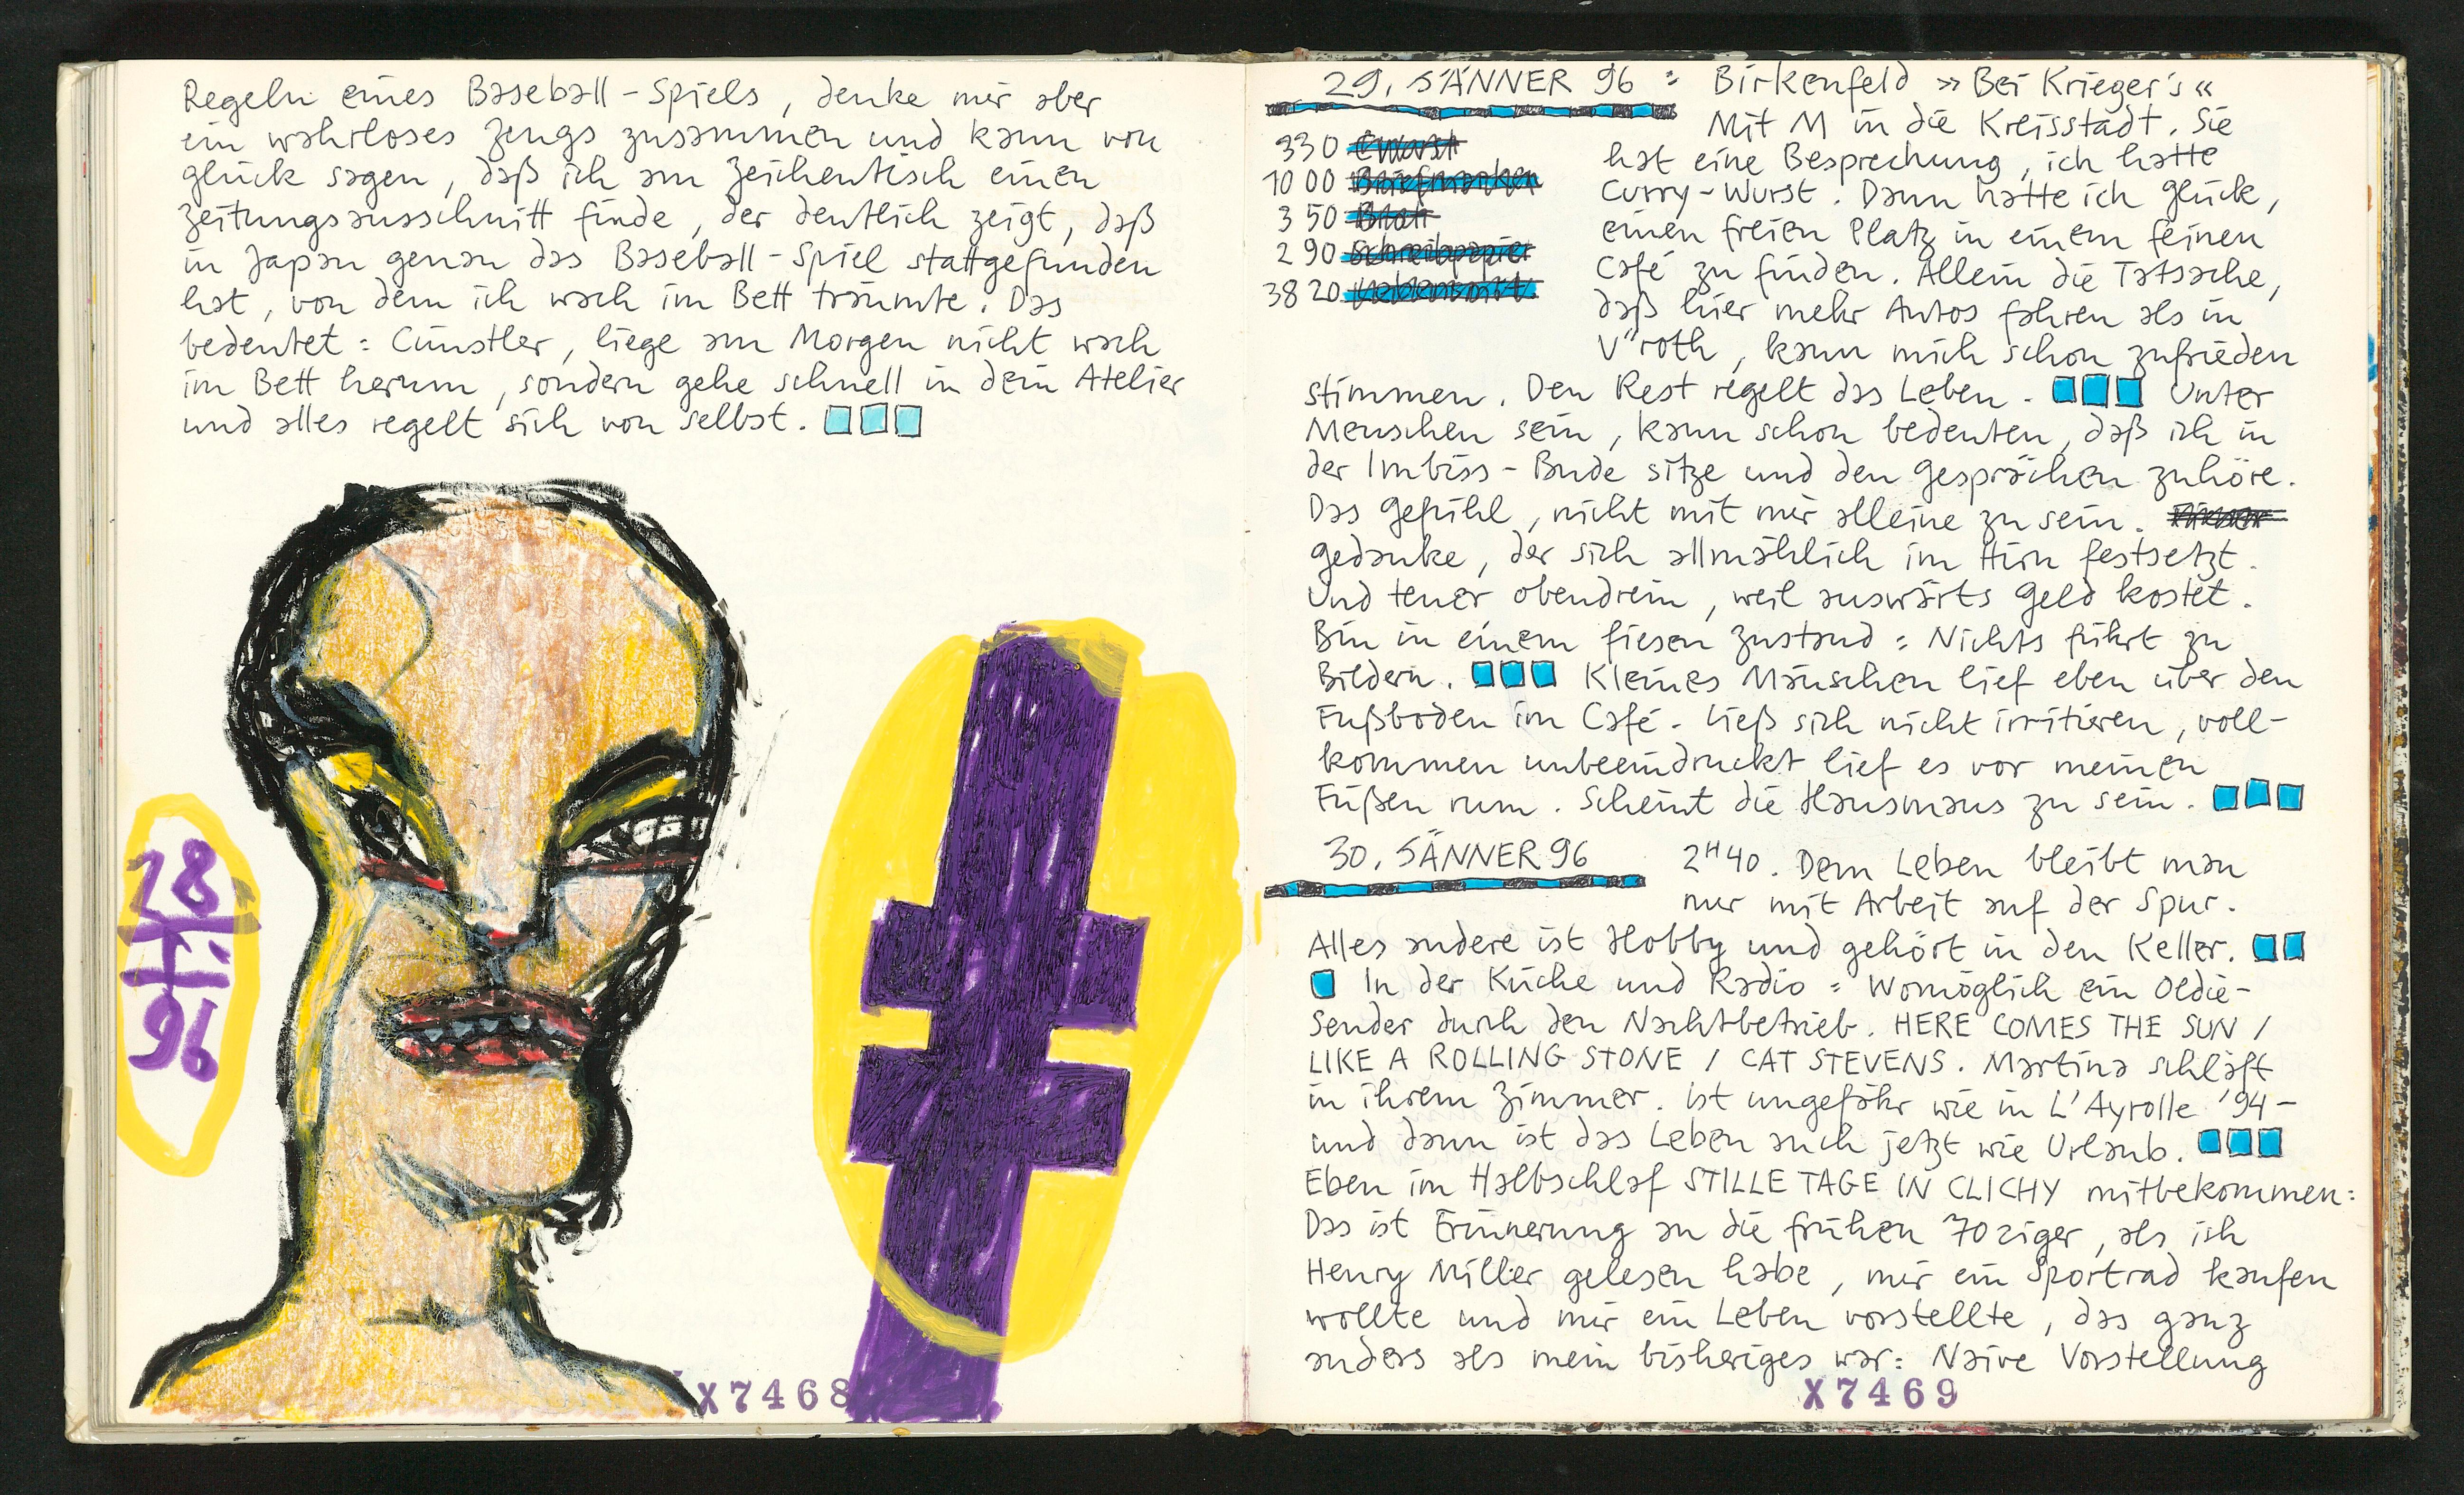 Regeln eines Baseball-Spiels, denke mir aber
ein wahrloses Zeugs zusammen und kann von
Glück sagen, daß ich am Zeichentisch einen
Zeitungsausschnitt finde, der deutlich zeigt, daß
in Japan genau das Baseball-Spiel stattgefunden
hat, von dem ich wach im Bett träumte. Das
bedeutet: Cünstler, liege am Morgen nicht wach
im Bett herum, sondern gehe schnell in dein Atelier
und alles regelt sich von selbst.
28
I.
96
X7468
29. JÄNNER 96 : Birkenfeld »Bei Krieger's«
Mit M in die Kreisstadt. Sie
330
hat eine Besprechung, ich hatte
1000 Briefmarken
Curry-Wurst. Dann hatte ich Glück,
350
einen freien Platz in einem feinen
290 Schreibpapier
Café zu finden. Allein die Tatsache,
3820
daß hier mehr Autos fahren als in
V"roth, kann mich schon zufrieden
stimmen. Den Rest regelt das Leben. Unter
Menschen sein, kann schon bedeuten, daß ich in
der Imbiss-Bude sitze und den Gesprächen zuhöre.
Das Gefühl, nicht mit mir alleine zu sein.
Gedanke, der sich allmählich im Hirn festsetzt.
Und teuer obendrein, weil auswärts Geld kostet.
Bin in einem fiesen Zustand: Nichts führt zu
Bildern. Kleines Mäuschen lief eben über den
Fußboden im Café. Ließ sich nicht irritieren, voll-
kommen unbeeindruckt lief es vor meinen
Füßen rum. Scheint die Hausmaus zu sein.
30. JÄNNER 96 2H40. Dem Leben bleibt man
nur mit Arbeit auf der Spur.
Alles andere ist Hobby und gehört in den Keller.
In der Küche und Radio: Womöglich ein Oldie-
Sender durch den Nachtbetrieb. HERE COMES THE SUN /
LIKE A ROLLING STONE / CAT STEVENS. Martina schläft
in ihrem Zimmer. Ist ungefähr wie in L'Ayrolle '94-
und dann ist das Leben auch jetzt wie Urlaub.
Eben im Halbschlaf STILLE TAGE IN CLICHY mitbekommen:
Das ist Erinnerung an die frühen 70ziger, als ich
Henry Miller gelesen habe, mir ein Sportrad kaufen
wollte und mir ein Leben vorstellte, das ganz
anders als mein bisheriges war: Naive Vorstellung
X7469